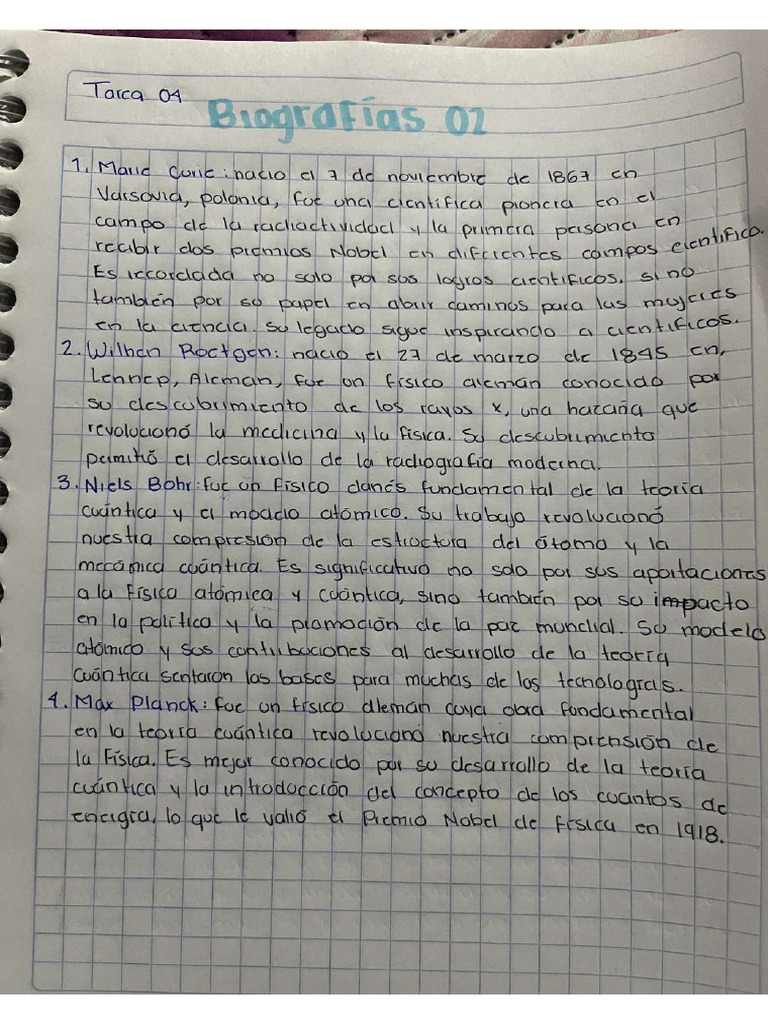 Tarea 04
Biografías 02
1. Marie Curie: nacio el 7 de noviembre de 1867 en
Varsovia, polonia, fue una científica pionera en el
campo de la radiactividad y la primera persona en
recibir dos premios Nobel en diferentes campos científico.
Es recordada no solo por sus logros científicos, sino
también por su papel en abrir caminos para las mujeres
en la ciencia. Su legado sigue inspirando a científicos.
2. Wilhen Roetgen: nacio el 27 de marzo de 1845 en,
Lennep, Aleman, fue un físico alemán conocido por
su descubrimiento de los rayos x, una hazaña que
revolucionó la medicina y la física. Su descubrimiento
permitió el desarrollo de la radiografía moderna.
3. Niels Bohr: fue un físico danés fundamental de la teoría
cuántica y el modelo atómico. Su trabajo revolucionó
nuestra compresión de la estructura del átomo y la
mecánica cuántica. Es significativo no solo por sus aportaciones
a la física atómica y cuántica, sino también por su impacto
en la política y la promoción de la paz mundial. Su modelo
atómico y sus contribuciones al desarrollo de la teoría
cuántica sentaron las bases para muchas de las tecnologias.
4. Max Planck: fue un físico alemán cuya obra fundamental
en la teoría cuántica revolucionó nuestra comprensión de
la física. Es mejor conocido por su desarrollo de la teoría
cuántica y la introducción del concepto de los cuantos de
energía, lo que le valió el Premio Nobel de física en 1918.